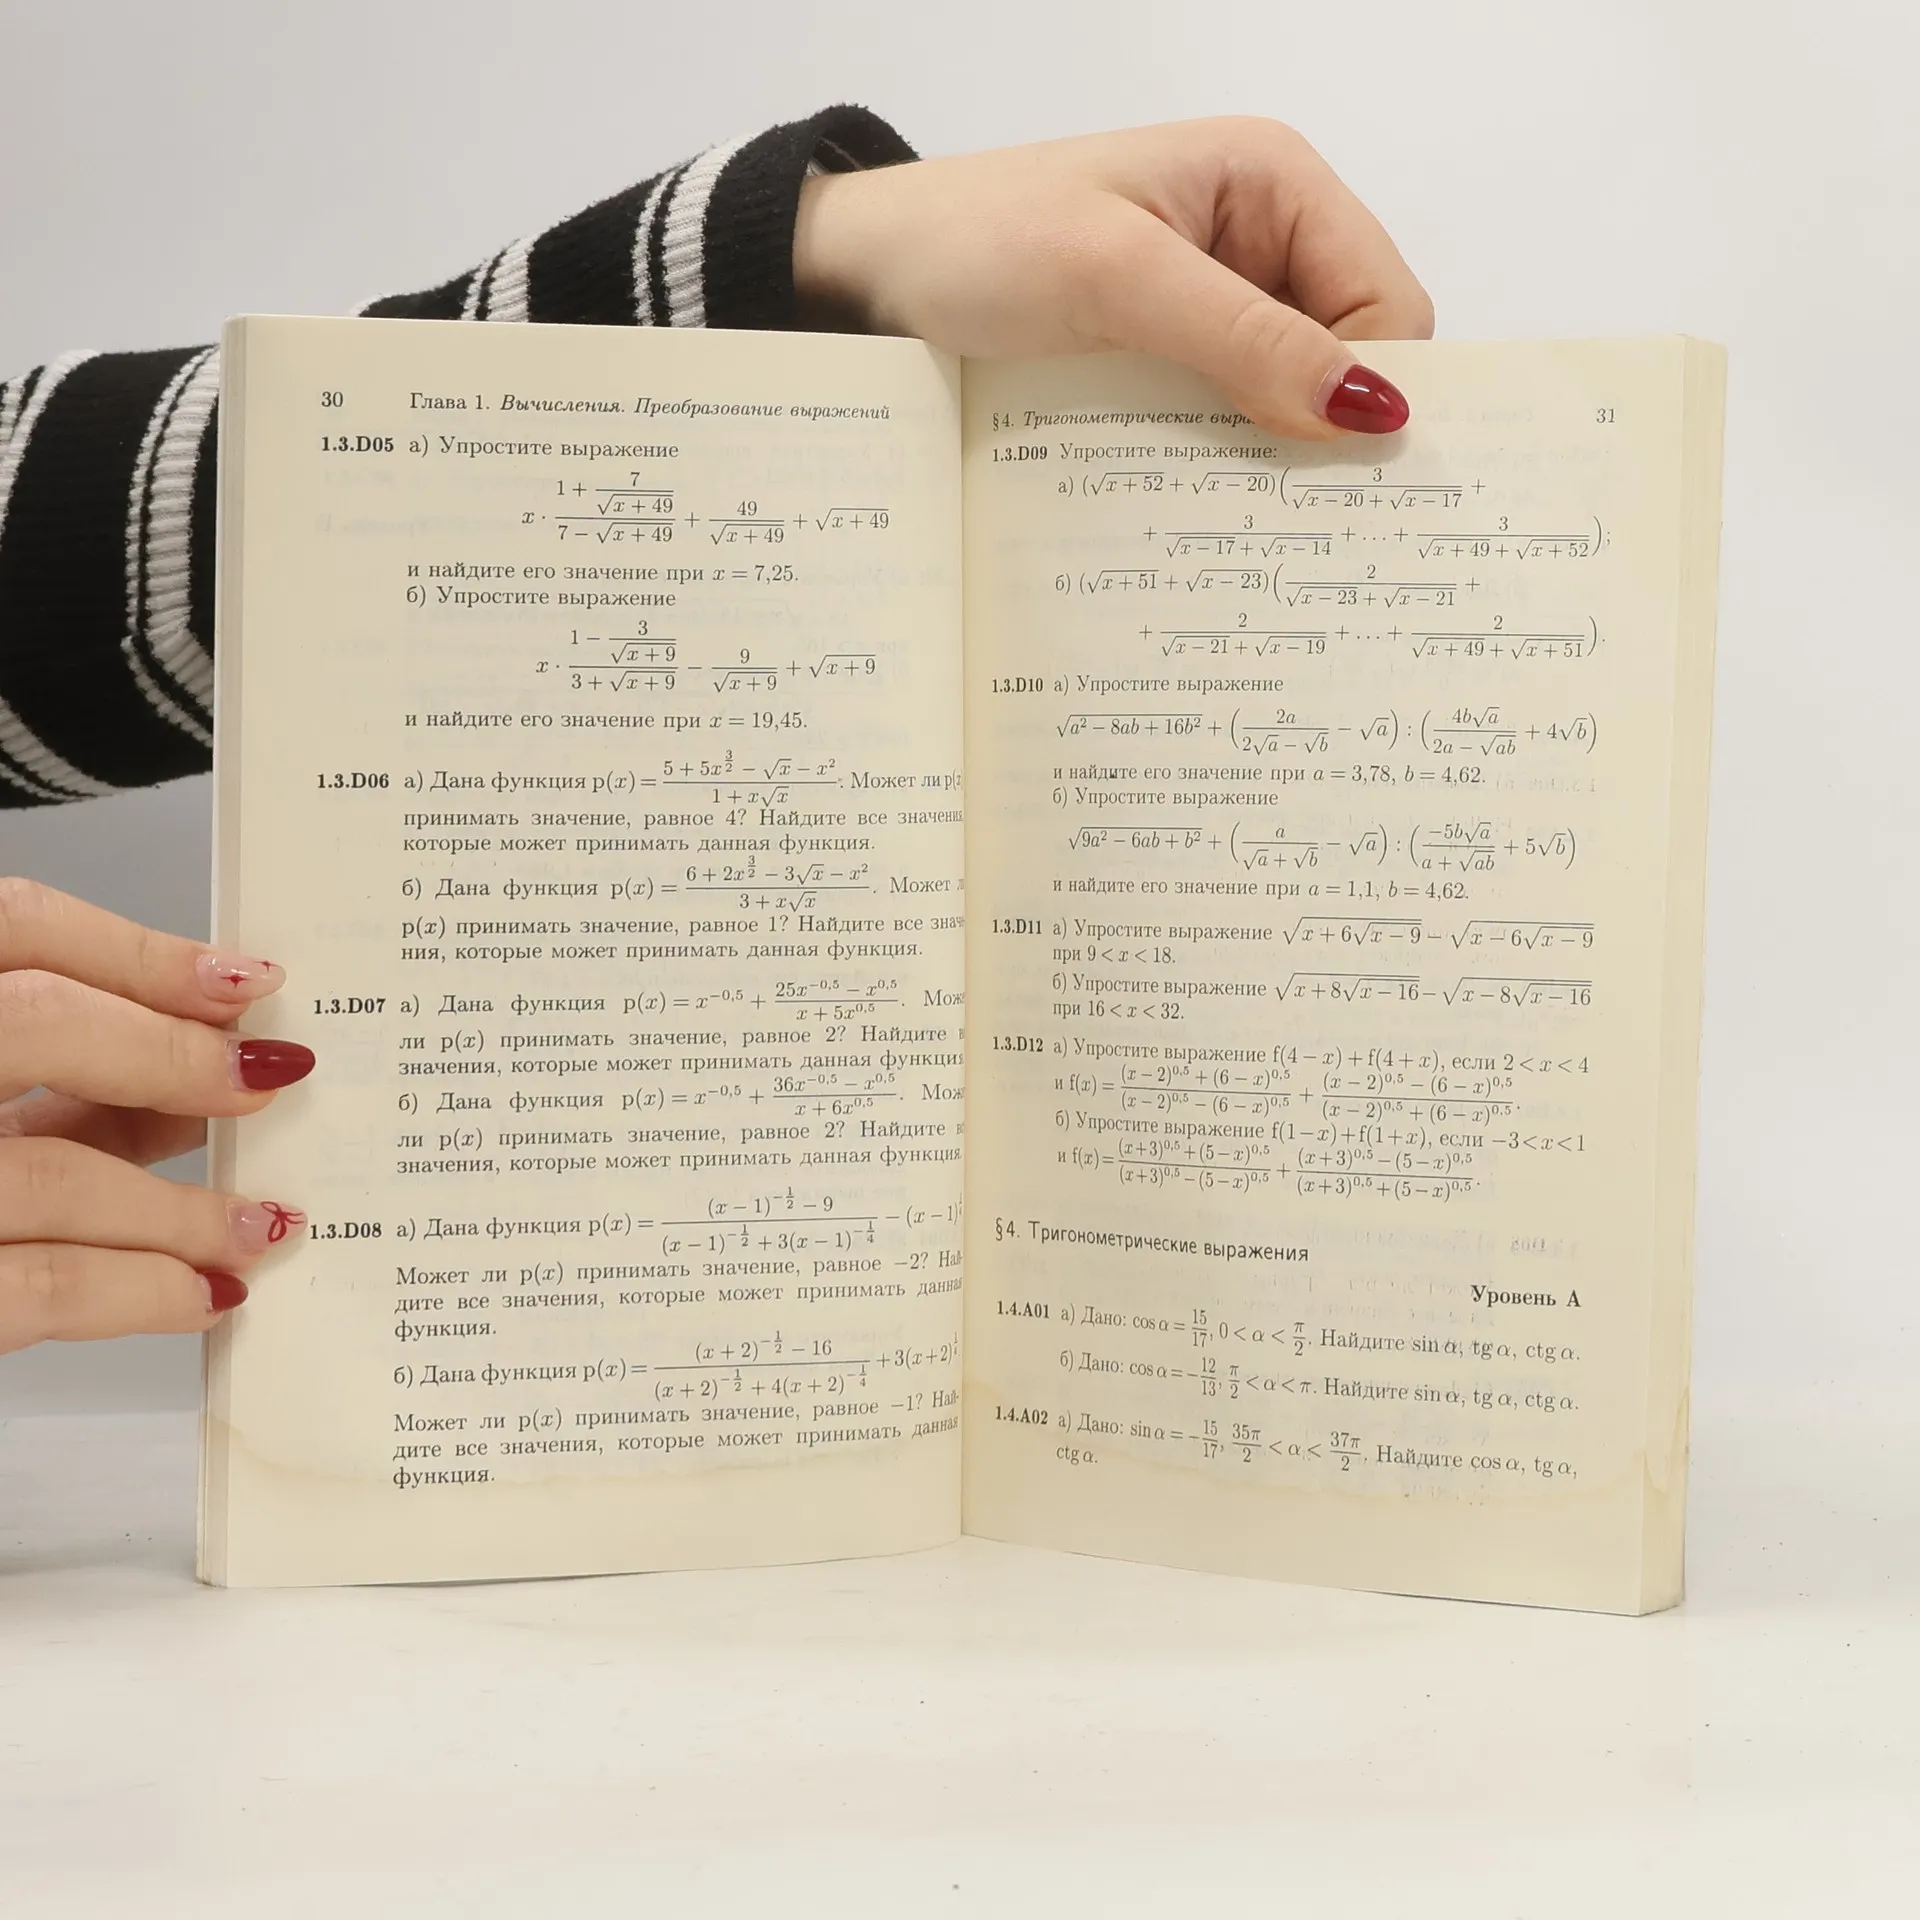 30 Глава 1. Вычисления. Преобразование выражений
1.3.D05 а) Упростите выражение
x · (1 + 7/√(x + 49))/(7 − √(x + 49)) + 49/√(x + 49) + √(x + 49)
и найдите его значение при x = 7,25.
б) Упростите выражение
x · (1 − 3/√(x + 9))/(3 + √(x + 9)) − 9/√(x + 9) + √(x + 9)
и найдите его значение при x = 19,45.
1.3.D06 а) Дана функция p(x) = (5 + 5x^(3/2) − √x − x²)/(1 + x√x). Может ли p(x
принимать значение, равное 4? Найдите все значения
которые может принимать данная функция.
б) Дана функция p(x) = (6 + 2x^(3/2) − 3√x − x²)/(3 + x√x). Может
p(x) принимать значение, равное 1? Найдите все знач
ния, которые может принимать данная функция.
1.3.D07 а) Дана функция p(x) = x^(−0,5) + (25x^(−0,5) − x^(0,5))/(x + 5x^(0,5)). Може
ли p(x) принимать значение, равное 2? Найдите в
значения, которые может принимать данная функция
б) Дана функция p(x) = x^(−0,5) + (36x^(−0,5) − x^(0,5))/(x + 6x^(0,5)). Може
ли p(x) принимать значение, равное 2? Найдите в
значения, которые может принимать данная функция
1.3.D08 а) Дана функция p(x) = ((x − 1)^(−1/2) − 9)/((x − 1)^(−1/2) + 3(x − 1)^(−1/4)) − (x − 1)
Может ли p(x) принимать значение, равное −2? Най-
дите все значения, которые может принимать данная
функция.
б) Дана функция p(x) = ((x + 2)^(−1/2) − 16)/((x + 2)^(−1/2) + 4(x + 2)^(−1/4)) + 3(x+2)
Может ли p(x) принимать значение, равное −1? Най-
дите все значения, которые может принимать данная
функция.
§4. Тригонометрические выра 31
1.3.D09 Упростите выражение:
а) (√(x + 52) + √(x − 20))(3/(√(x − 20) + √(x − 17)) +
+ 3/(√(x − 17) + √(x − 14)) + ... + 3/(√(x + 49) + √(x + 52)));
б) (√(x + 51) + √(x − 23))(2/(√(x − 23) + √(x − 21)) +
+ 2/(√(x − 21) + √(x − 19)) + ... + 2/(√(x + 49) + √(x + 51))).
1.3.D10 а) Упростите выражение
√(a² − 8ab + 16b²) + (2a/(2√a − √b) − √a) : (4b√a/(2a − √(ab)) + 4√b)
и найдите его значение при a = 3,78, b = 4,62.
б) Упростите выражение
√(9a² − 6ab + b²) + (a/(√a + √b) − √a) : (−5b√a/(a + √(ab)) + 5√b)
и найдите его значение при a = 1,1, b = 4,62.
1.3.D11 а) Упростите выражение √(x + 6√(x − 9)) − √(x − 6√(x − 9))
при 9 < x < 18.
б) Упростите выражение √(x + 8√(x − 16)) − √(x − 8√(x − 16))
при 16 < x < 32.
1.3.D12 а) Упростите выражение f(4 − x) + f(4 + x), если 2 < x < 4
и f(x) = ((x − 2)^(0,5) + (6 − x)^(0,5))/((x − 2)^(0,5) − (6 − x)^(0,5)) + ((x − 2)^(0,5) − (6 − x)^(0,5))/((x − 2)^(0,5) + (6 − x)^(0,5)).
б) Упростите выражение f(1−x)+f(1+x), если −3<x<1
и f(x) = ((x+3)^(0,5)+(5−x)^(0,5))/((x+3)^(0,5)−(5−x)^(0,5)) + ((x+3)^(0,5)−(5−x)^(0,5))/((x+3)^(0,5)+(5−x)^(0,5)).
§4. Тригонометрические выражения
Уровень А
1.4.A01 а) Дано: cos α = 15/17, 0 < α < π/2. Найдите sin α, tg α, ctg α.
б) Дано: cos α = −12/13, π/2 < α < π. Найдите sin α, tg α, ctg α.
1.4.A02 а) Дано: sin α = −15/17, 35π/2 < α < 37π/2. Найдите cos α, tg α,
ctg α.